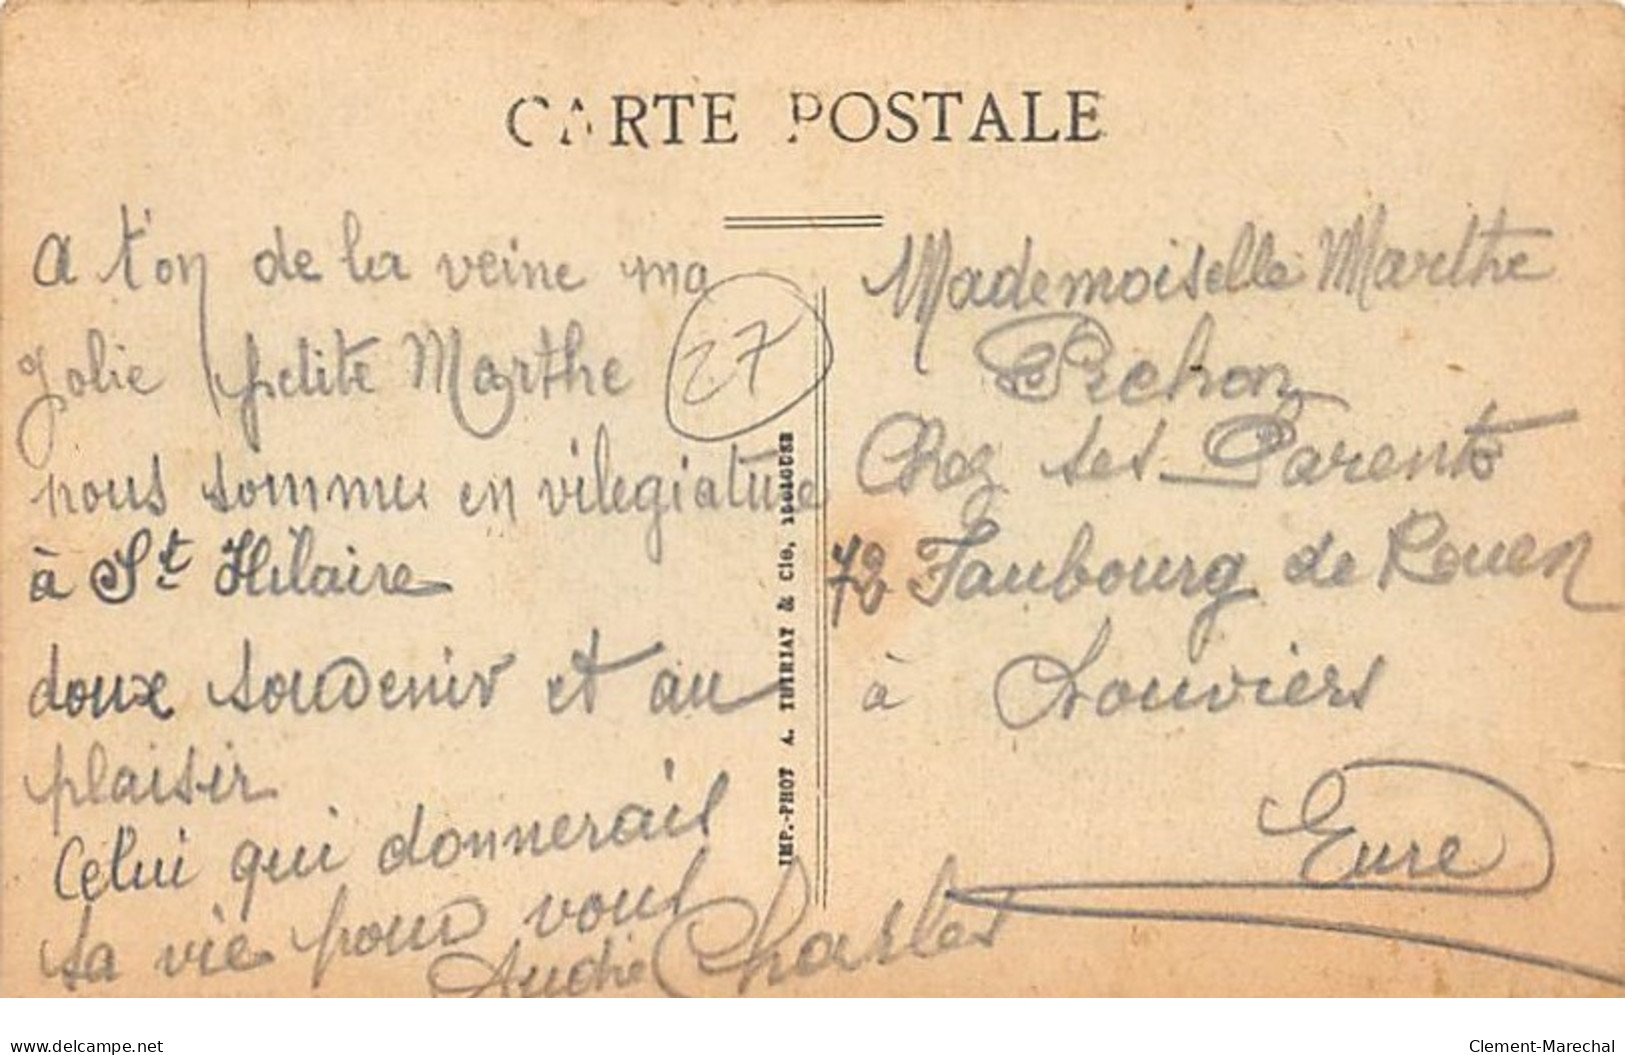 CARTE POSTALE
a t'on de la veine ma
Jolie petite Marthe
27
nous sommes en vilegiature
à St Hilaire
doux souvenir et au
plaisir
Celui qui donnerais
sa vie pour vous
André Charles
IMP.-PHOT A. THIRIAT & Cie, TOULOUSE
Mademoiselle Marthe
Pichon
Chez ses Parents
72 Faubourg de Rouen
à Louviers
Eure
delcampe.net
Clement-Marechal